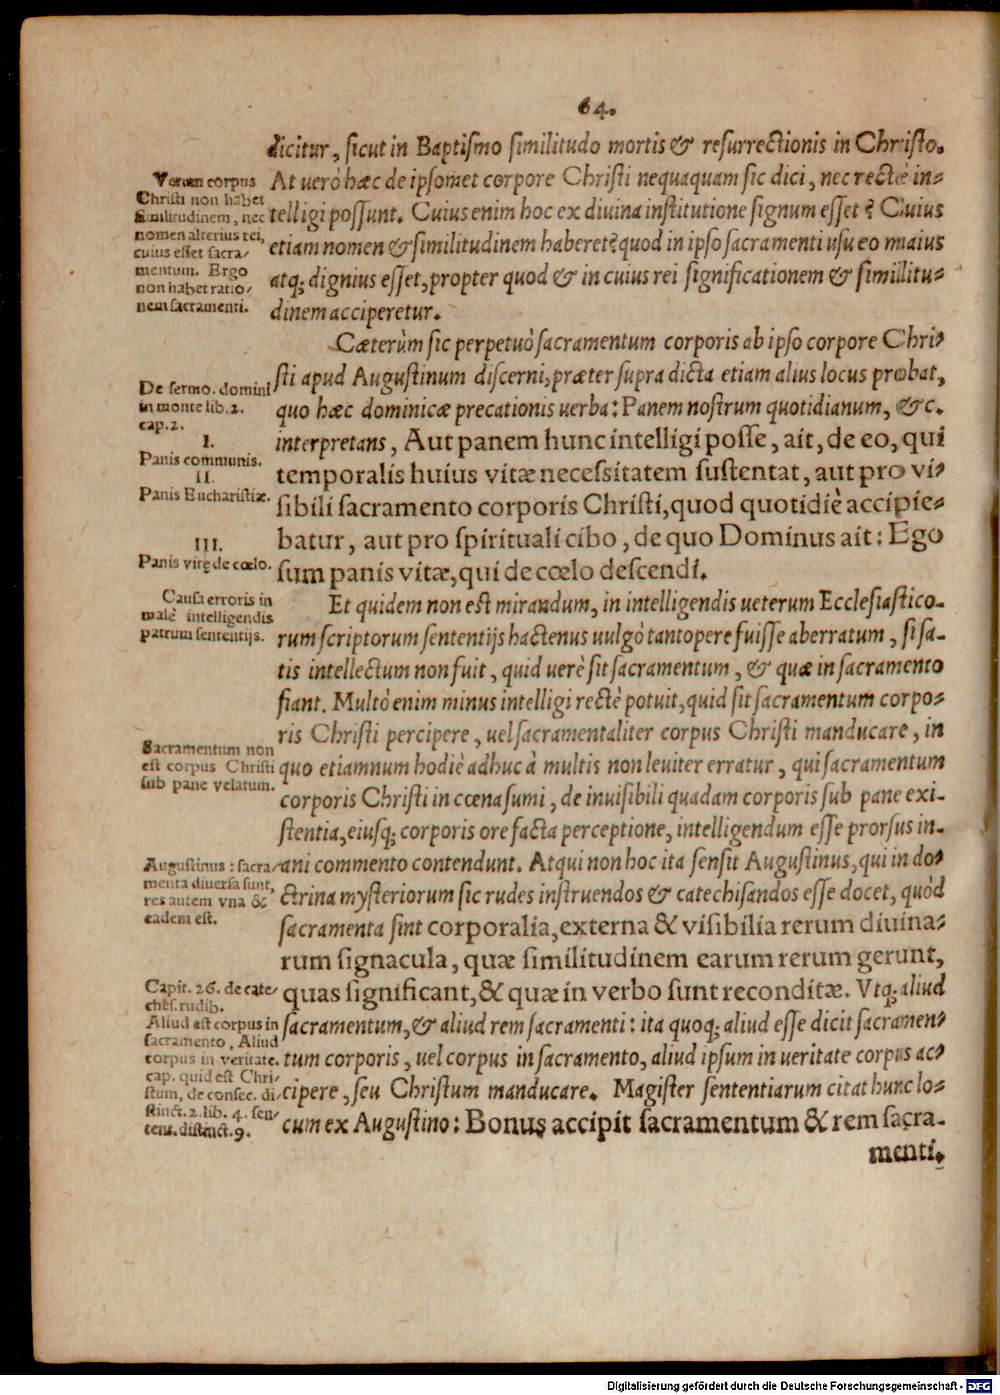 64.
dicitur, sicut in Baptismo similitudo mortis & resurrectionis in Christo.
At uerò hæc de ipsomet corpore Christi nequaquam sic dici, nec rectè in-
telligi possunt. Cuius enim hoc ex diuina institutione signum esset? Cuius
etiam nomen & similitudinem haberet? quod in ipso sacramenti usu eo maius
atq; dignius esset, propter quod & in cuius rei significationem & simillitu-
dinem acciperetur.
Verum corpus
Christi non habet
similitudinem, nec
nomen alterius rei,
cuius esset sacra-
mentum. Ergo
non habet ratio-
nem sacramenti.
Cæterùm sic perpetuò sacramentum corporis ab ipso corpore Chri-
sti apud Augustinum discerni, præter supra dicta etiam alius locus probat,
quo hæc dominicæ precationis uerba: Panem nostrum quotidianum, &c.
interpretans, Aut panem hunc intelligi posse, ait, de eo, qui
temporalis huius vitæ necessitatem sustentat, aut pro vi-
sibili sacramento corporis Christi, quod quotidiè accipie-
batur, aut pro spirituali cibo, de quo Dominus ait: Ego
sum panis vitæ, qui de cœlo descendi.
De sermo. domini
in monte lib. 2.
cap. 2.
I.
Panis communis.
II
Panis Eucharistiæ.
III.
Panis viuę de cœlo.
Et quidem non est mirandum, in intelligendis ueterum Ecclesiastico-
rum scriptorum sententijs hactenus uulgò tantopere fuisse aberratum, si sa-
tis intellectum non fuit, quid uerè sit sacramentum, & quæ in sacramento
fiant. Multò enim minus intelligi rectè potuit, quid sit sacramentum corpo-
ris Christi percipere, uel sacramentaliter corpus Christi manducare, in
quo etiamnum hodiè adhuc à multis non leuiter erratur, qui sacramentum
corporis Christi in cœna sumi, de inuisibili quadam corporis sub pane exi-
stentia, eiusq; corporis ore facta perceptione, intelligendum esse prorsus in-
ani commento contendunt. Atqui non hoc ita sensit Augustinus, qui in do-
ctrina mysteriorum sic rudes instruendos & catechisandos esse docet, quòd
sacramenta sint corporalia, externa & visibilia rerum diuina-
rum signacula, quæ similitudinem earum rerum gerunt,
quas significant, & quæ in verbo sunt reconditæ. Vtq; aliud
sacramentum, & aliud rem sacramenti: ita quoq; aliud esse dicit sacramen-
tum corporis, uel corpus in sacramento, aliud ipsum in ueritate corpus ac-
cipere, seu Christum manducare. Magister sententiarum citat hunc lo-
cum ex Augustino: Bonus accipit sacramentum & rem sacra-
menti.
Causa erroris in
malè intelligendis
patrum sententijs.
Sacramentum non
est corpus Christi
sub pane velatum.
Augustinus: sacra-
menta diuersa sunt,
res autem vna &
eadem est.
Capit. 26. de cate-
ches. rudib.
Aliud est corpus in
sacramento, Aliud
corpus in veritate.
cap. quid est Chri-
stum, de consec. di-
stinct. 2. lib. 4. sen-
tent. distinct. 9.
Digitalisierung gefördert durch die Deutsche Forschungsgemeinschaft - DFG